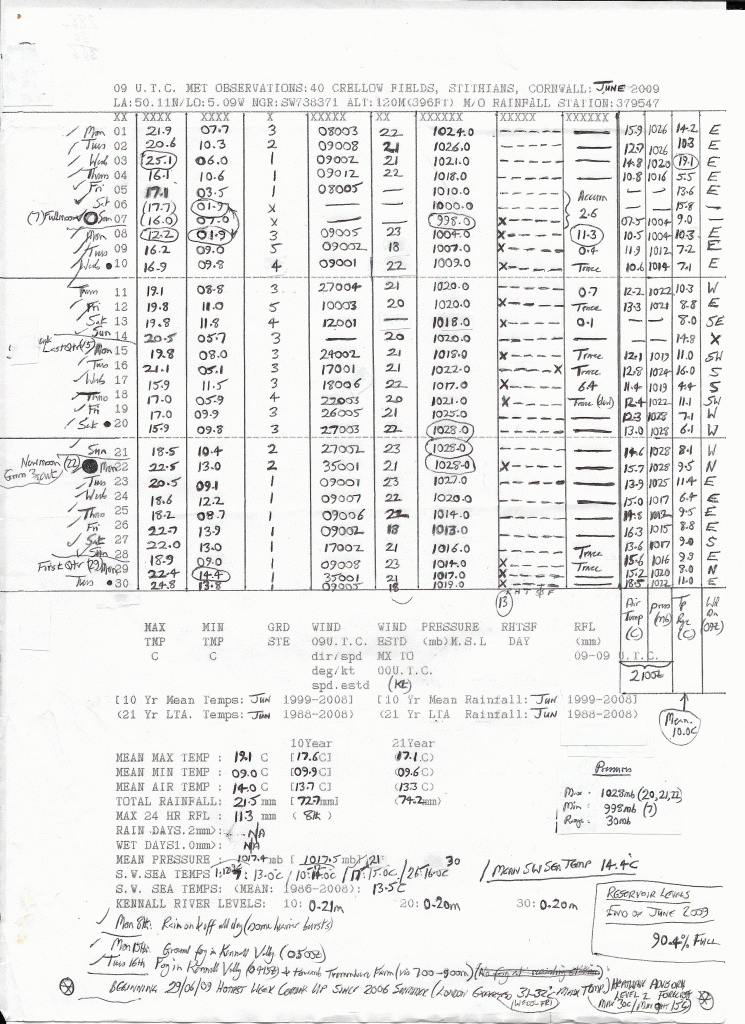 09 U.T.C. MET OBSERVATIONS:40 CRELLOW FIELDS, STITHIANS, CORNWALL: JUNE 2009
LA:50.11N/LO:5.09W NGR:SW738371 ALT:120M(396FT) M/O RAINFALL STATION:379547
XX XXXX XXXX X XXXXX XX XXXXXX XXXXX XXXXXX
Mon 01 21.9 07.7 3 08003 22 1024.0 ----- — 15.9 1026 14.2 E
Tues 02 20.6 10.3 2 09008 21 1026.0 ----- — 12.7 1026 10.3 E
Wed 03 25.1 06.0 1 09002 21 1021.0 ----- — 14.8 1020 19.1 E
Thurs 04 16.1 10.6 1 09012 22 1018.0 ----- — 10.8 1016 5.5 E
Fri 05 17.1 03.5 1 08005 — 1010.0 ----- — — 13.6 E
Sat 06 (17.7) 01.9 X — — 1000.0 ----- Accum — — 15.8 —
(7) Fullmoon Sun 07 (16.0) 07.0 X — — 998.0 X---- 2.6 07.5 1004 9.0 —
Mon 08 12.2 01.9 3 09005 23 1004.0 X---- 11.3 10.5 1004 10.3 E
Tues 09 16.2 09.0 5 09002 18 1007.0 X---- 0.4 11.9 1012 7.2 E
Wed 10 16.9 09.8 4 09001 22 1009.0 X---- Trace 10.6 1014 7.1 E
Thurs 11 19.1 08.8 3 27004 21 1020.0 ----- 0.7 12.2 1022 10.3 W
Fri 12 19.8 11.0 5 10003 20 1020.0 ----- Trace 13.3 1021 8.8 E
Sat 13 19.8 11.8 4 12001 1018.0 X---- 0.1 — — 8.0 SE
Sun 14 20.5 05.7 3 — 20 1020.0 ----- — — — 14.8 X
Last Qtr (15) Mon 15 19.8 08.0 3 24002 21 1018.0 X---- Trace 12.1 1019 11.0 SW
Tues 16 21.1 05.1 3 17001 21 1022.0 ----X Trace 12.8 1024 16.0 S
Wed 17 15.9 11.5 3 18006 22 1017.0 X---- 6.4 11.4 1019 4.4 S
Thurs 18 17.0 05.9 4 22003 20 1021.0 X---- Trace 12.4 1022 11.1 SW
Fri 19 17.0 09.9 3 26005 21 1025.0 ----- — 12.3 1028 7.1 W
Sat 20 15.9 09.8 3 27003 22 1028.0 ----- — 13.0 1028 6.1 W
Sun 21 18.5 10.4 2 27002 23 1028.0 ----- — 14.6 1028 8.1 W
New moon (22) Mon 22 22.5 13.0 2 35001 21 1028.0 X---- — 15.7 1028 9.5 N
Tues 23 20.5 09.1 1 09001 23 1027.0 ----- — 13.9 1025 11.4 E
Wed 24 18.6 12.2 1 09007 22 1020.0 ----- — 15.0 1017 6.4 E
Thurs 25 18.2 08.7 1 09006 22 1014.0 ----- — 14.8 1012 9.5 E
Fri 26 22.7 13.9 1 09002 18 1013.0 ----- — 16.3 1015 8.8 E
Sat 27 22.0 13.0 1 17002 21 1016.0 ----- — 13.6 1017 9.0 S
Sun 28 18.9 09.0 1 09008 23 1014.0 X---- Trace 15.6 1016 9.9 E
First Qtr (29) Mon 29 22.4 14.4 1 35001 21 1017.0 X---- Trace 15.2 1020 8.0 N
Tues 30 24.8 13.8 1 09005 18 1019.0 X---- — 18.5 1022 11.0 E
13 R H T S F
MAX MIN GRD WIND WIND PRESSURE RHTSF RFL
TMP TMP STE 09U.T.C. ESTD (mb)M.S.L DAY (mm)
C C dir/spd MX TO 09-09 U.T.C.
deg/kt 00U.T.C.
spd.estd (Kt)
Air Temp (C) press (mb) Tp Rge (C) Wd Dn (09Z)
2100z
Mean 10.0C
[10 Yr Mean Temps: JUN 1999-2008] [10 Yr Mean Rainfall: JUN 1999-2008]
(21 Yr LTA. Temps: JUN 1988-2008) (21 Yr LTA Rainfall: JUN 1988-2008)
10Year 21Year
MEAN MAX TEMP : 19.1 C [17.6C] (17.1C)
MEAN MIN TEMP : 09.0 C [09.9C] (09.6C)
MEAN AIR TEMP : 14.0 C [13.7C] (13.3C)
TOTAL RAINFALL: 21.5 mm [72.7mm] (74.2mm)
MAX 24 HR RFL : 11.3 mm (8th)
RAIN DAYS.2mm): NA
WET DAYS1.0mm): NA
MEAN PRESSURE : 1017.4 mb [1017.5 mb]
Pressures
Max - 1028mb (20,21,22)
Min - 998mb (7)
Range - 30mb
S.W. SEA TEMPS
MEAN SW SEA TEMP 14.4°C
S.W. SEA TEMPS: (MEAN: 1986-2008): 13.5C
KENNALL RIVER LEVELS: 10: 0.21m 20: 0.20m 30: 0.20m
RESERVOIR LEVELS
END OF JUNE 2009
90.4% FULL
Mon 8th: Rain on & off all day (some heavier bursts)
Mon 15th: Ground fog in Kennall Valley (0500z)
Tues 16th Fog in Kennall Valley
BEGINNING 29/06/09 HOTTEST WEEK COMING UP SINCE 2006 (LONDON 31-32°C MAX TEMP) (WEDS-FRI)
HEATWAVE ADVISORY
LEVEL 2 FORECAST
MAX 30C/MIN 15C